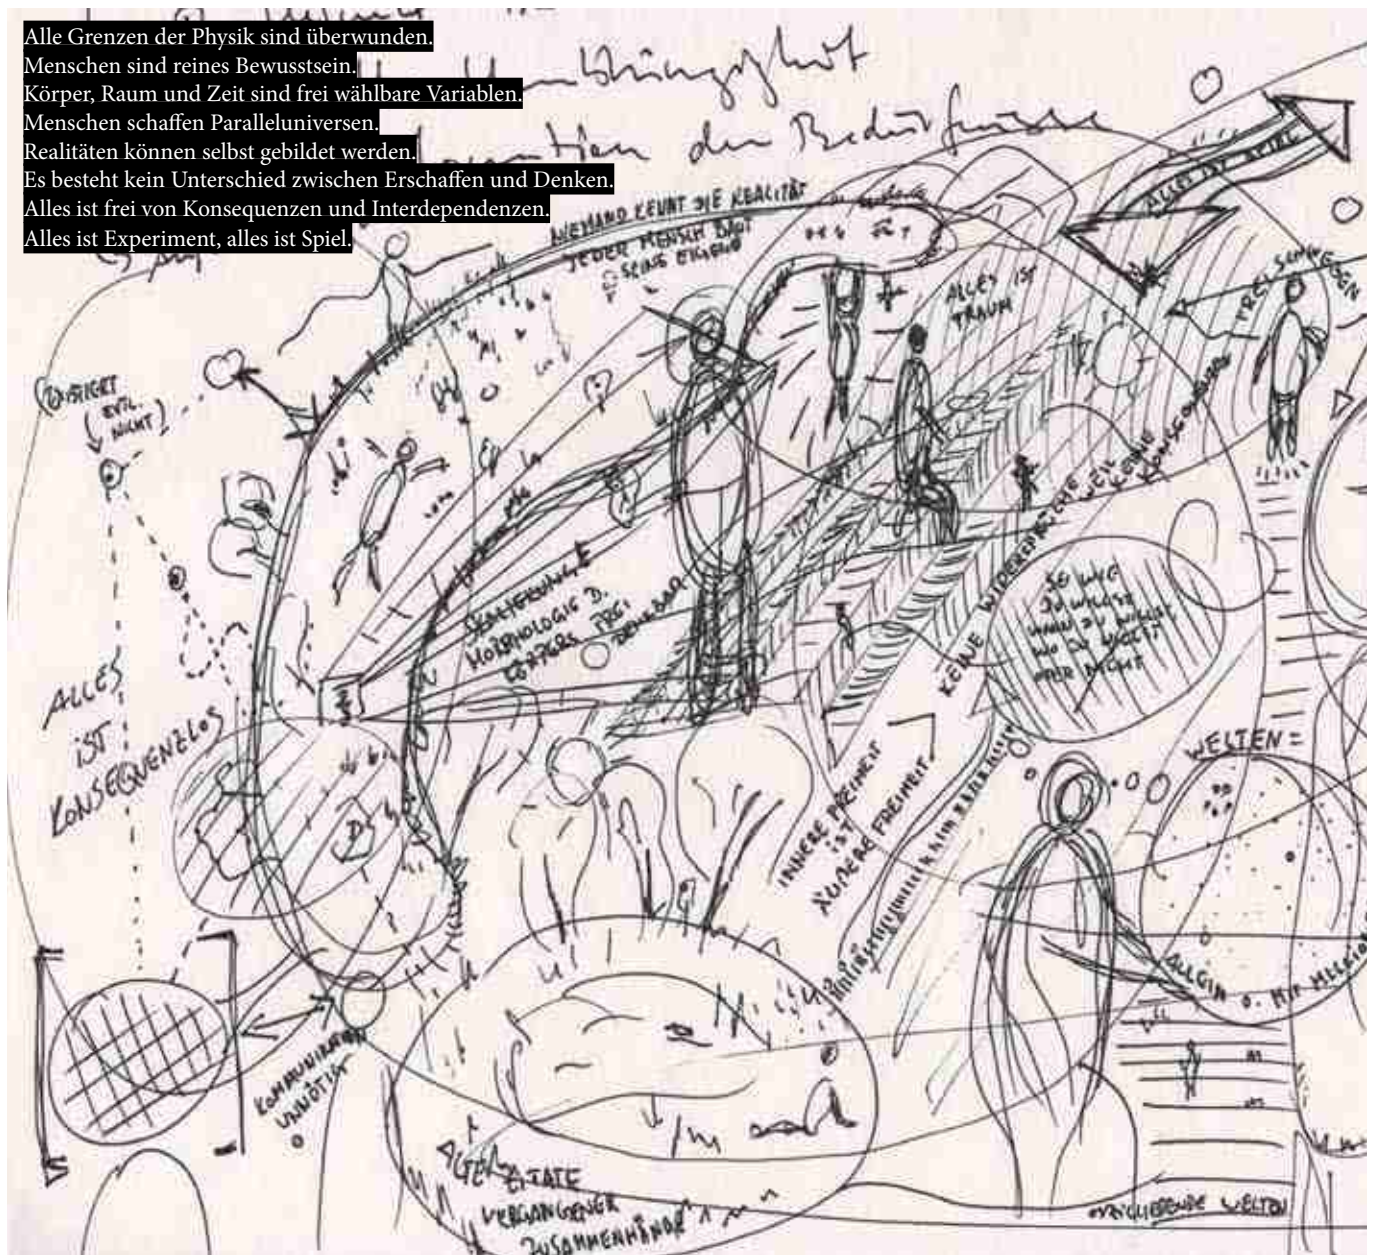 Alle Grenzen der Physik sind überwunden.
Menschen sind reines Bewusstsein.
Körper, Raum und Zeit sind frei wählbare Variablen.
Menschen schaffen Paralleluniversen.
Realitäten können selbst gebildet werden.
Es besteht kein Unterschied zwischen Erschaffen und Denken.
Alles ist frei von Konsequenzen und Interdependenzen.
Alles ist Experiment, alles ist Spiel.
der Bedürfnisse
NIEMAND KENNT DIE REALITÄT
JEDER MENSCH BAUT
SEINE EIGENE
ALLES IST SPIEL
ALLES IST
TRAUM
FREI SCHWEBEN
EXISTIERT
(EVTL.
NICHT)
SKALIERUNG &
MORPHOLOGIE D.
KÖRPERS FREI
DENKBAR
KEINE WIDERSPRÜCHE WEIL
KEINE
KONSEQUENZEN
SEI WIE
DU WILLST
WANN DU WILLST
WO DU WILLST
ODER NICHT
ALLES
IST
KONSEQUENZLOS
INNERE FREIHEIT
IST
ÄUßERE FREIHEIT
WELTEN =
ALLEIN O. MIT
KOMMUNIKATION
UNNÖTIG
VERGANGENER
ZUSAMMENHÄNGE
WELTEN